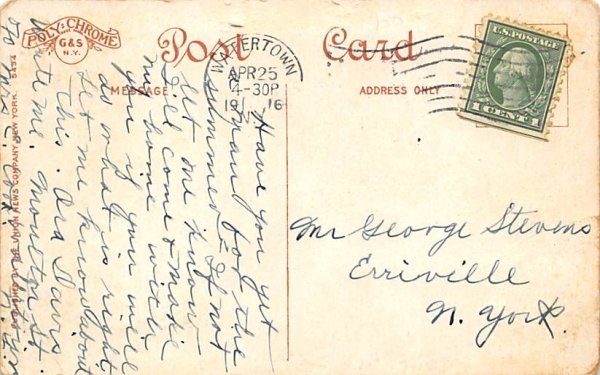 POLY-CHROME
G&S
N.Y.
Post Card
MESSAGE
ADDRESS ONLY
WATERTOWN
APR 25
4-30P
1916
N.Y.
U.S. POSTAGE
1 CENT 1
Have you yet
a man for the
summer - If not
let me know
I'll come & make
my home with
you if you will
as what is right
Let me know about
this. Ora Davis
Write me. Moulton St
Mr George Stevens
Erriville
N. York.
PUBLISHED BY THE UNION NEWS COMPANY, NEW YORK.